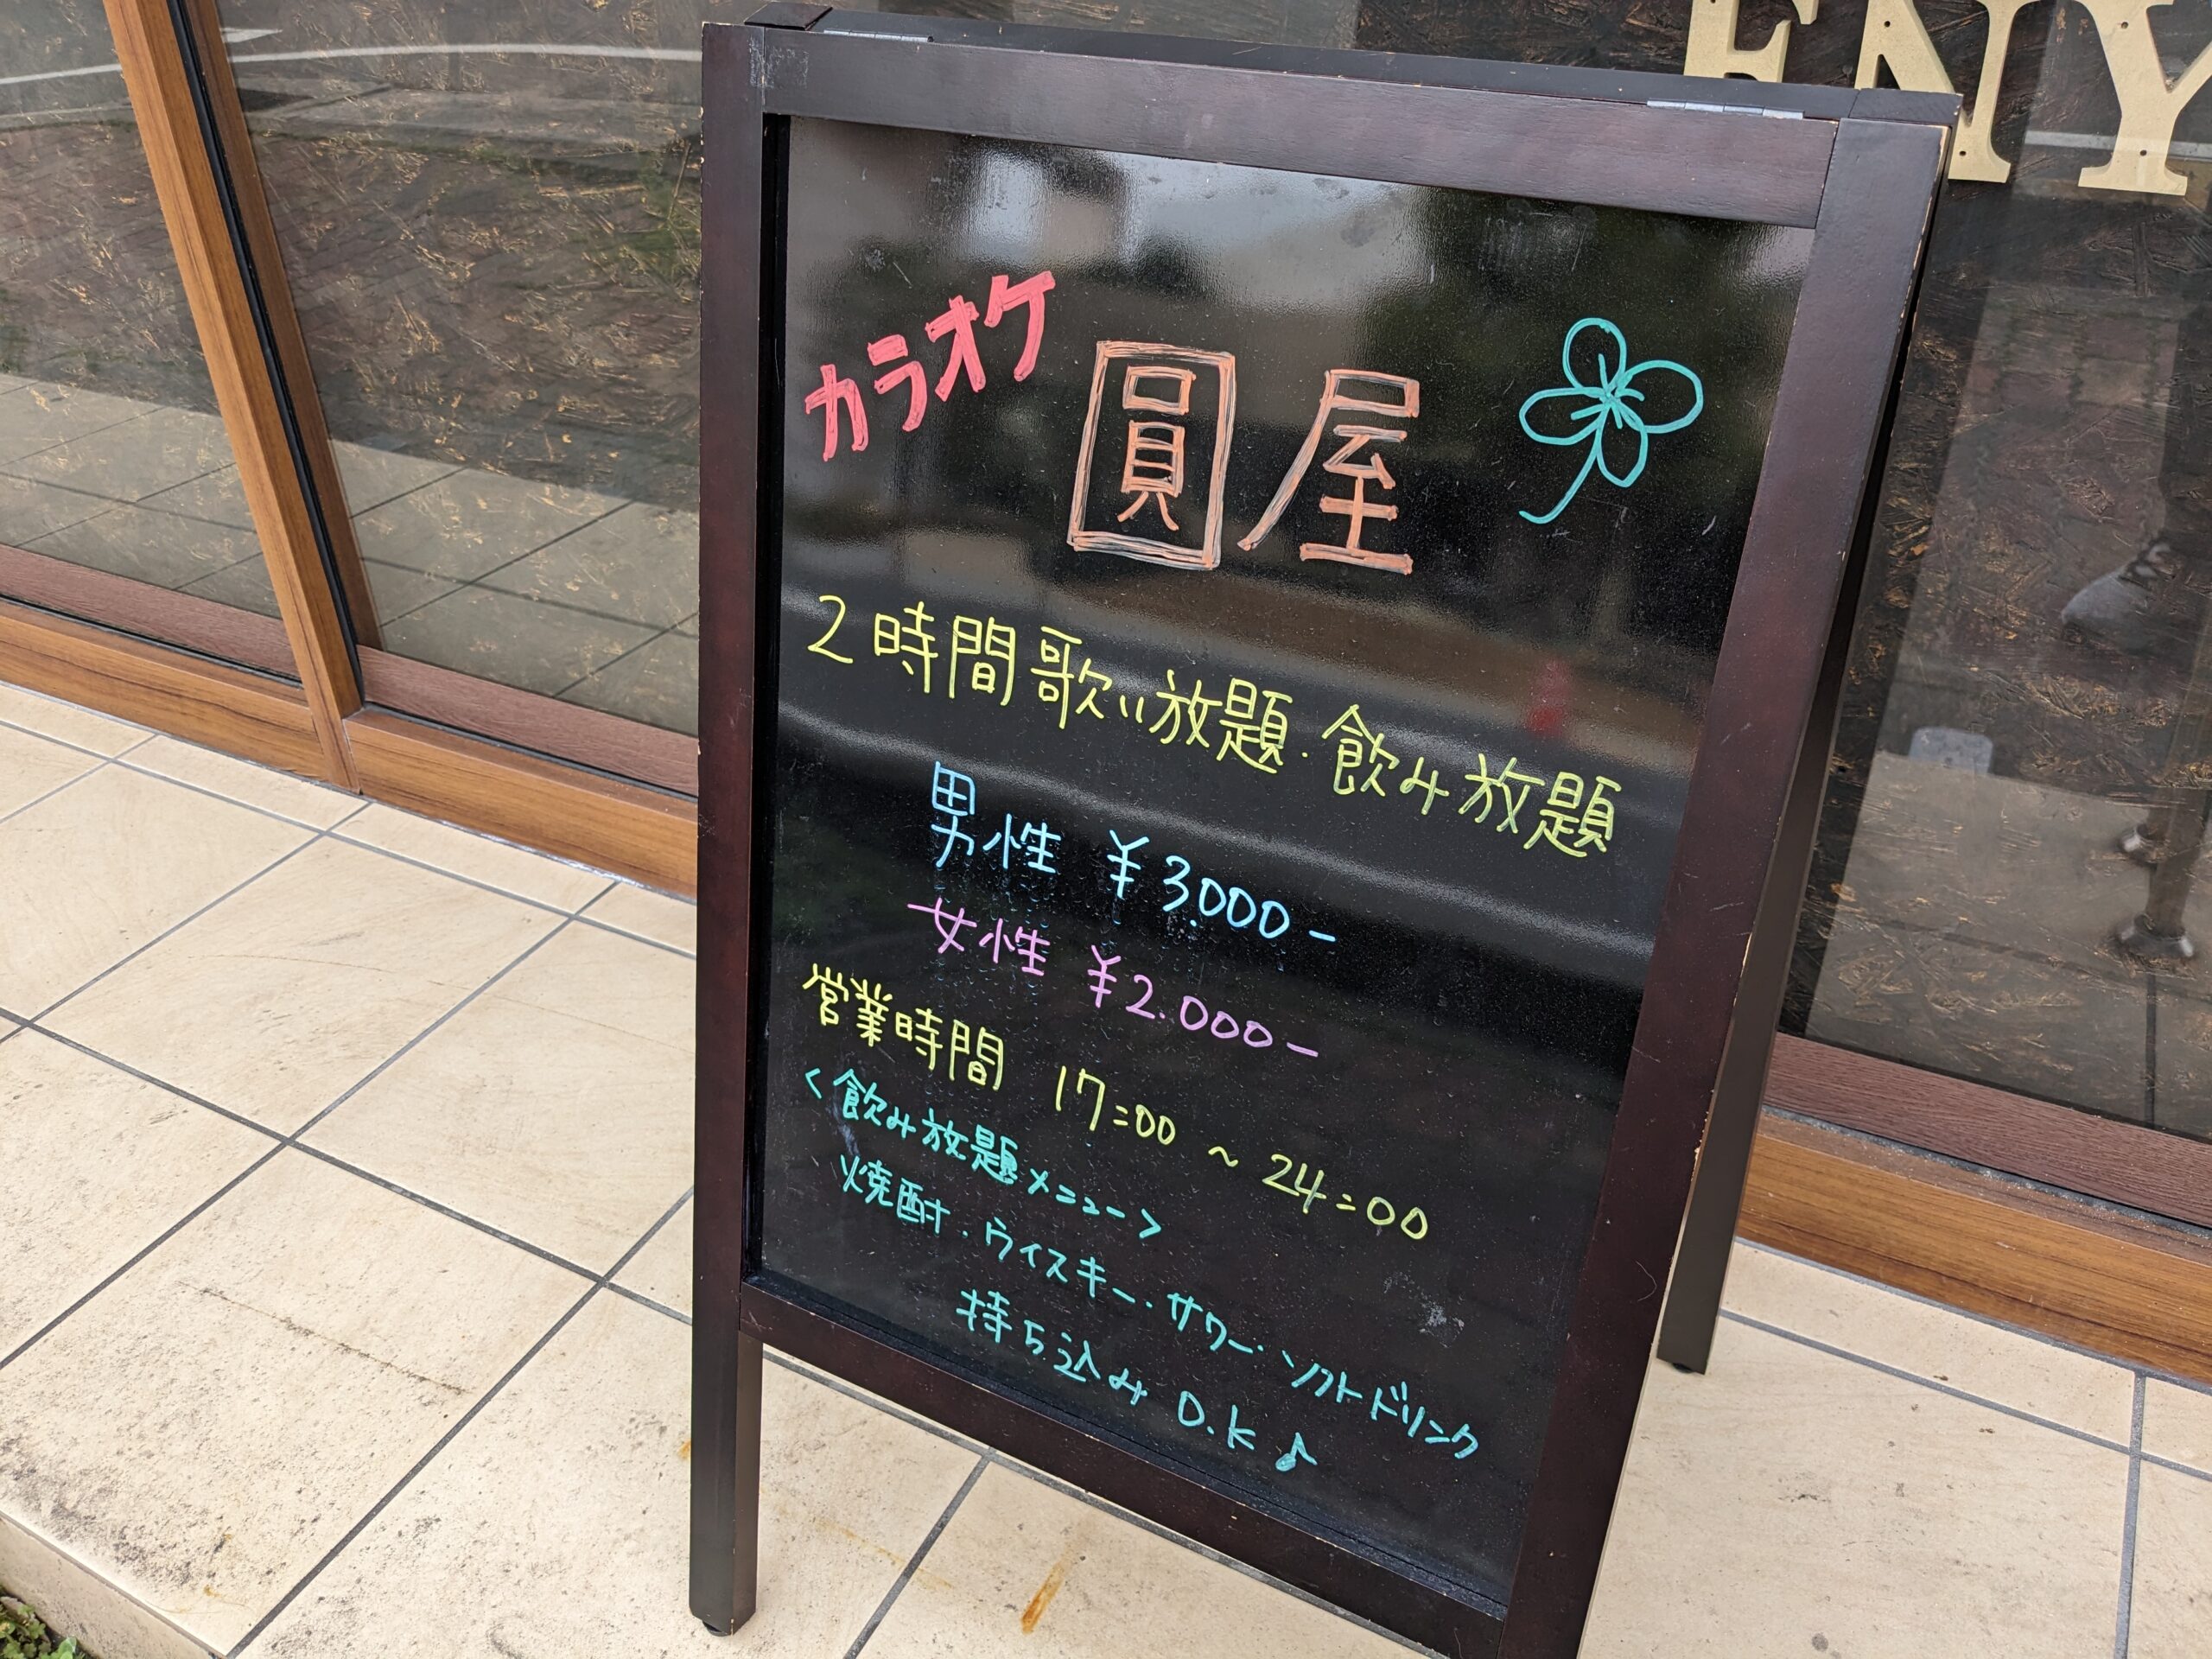 ENY
カラオケ
圓屋
2時間歌い放題・飲み放題
男性 ¥3.000-
女性 ¥2.000-
営業時間 17:00 ~ 24:00
<飲み放題メニュー>
焼酎・ウイスキー・サワー・ソフトドリンク
持ち込みO.K♪